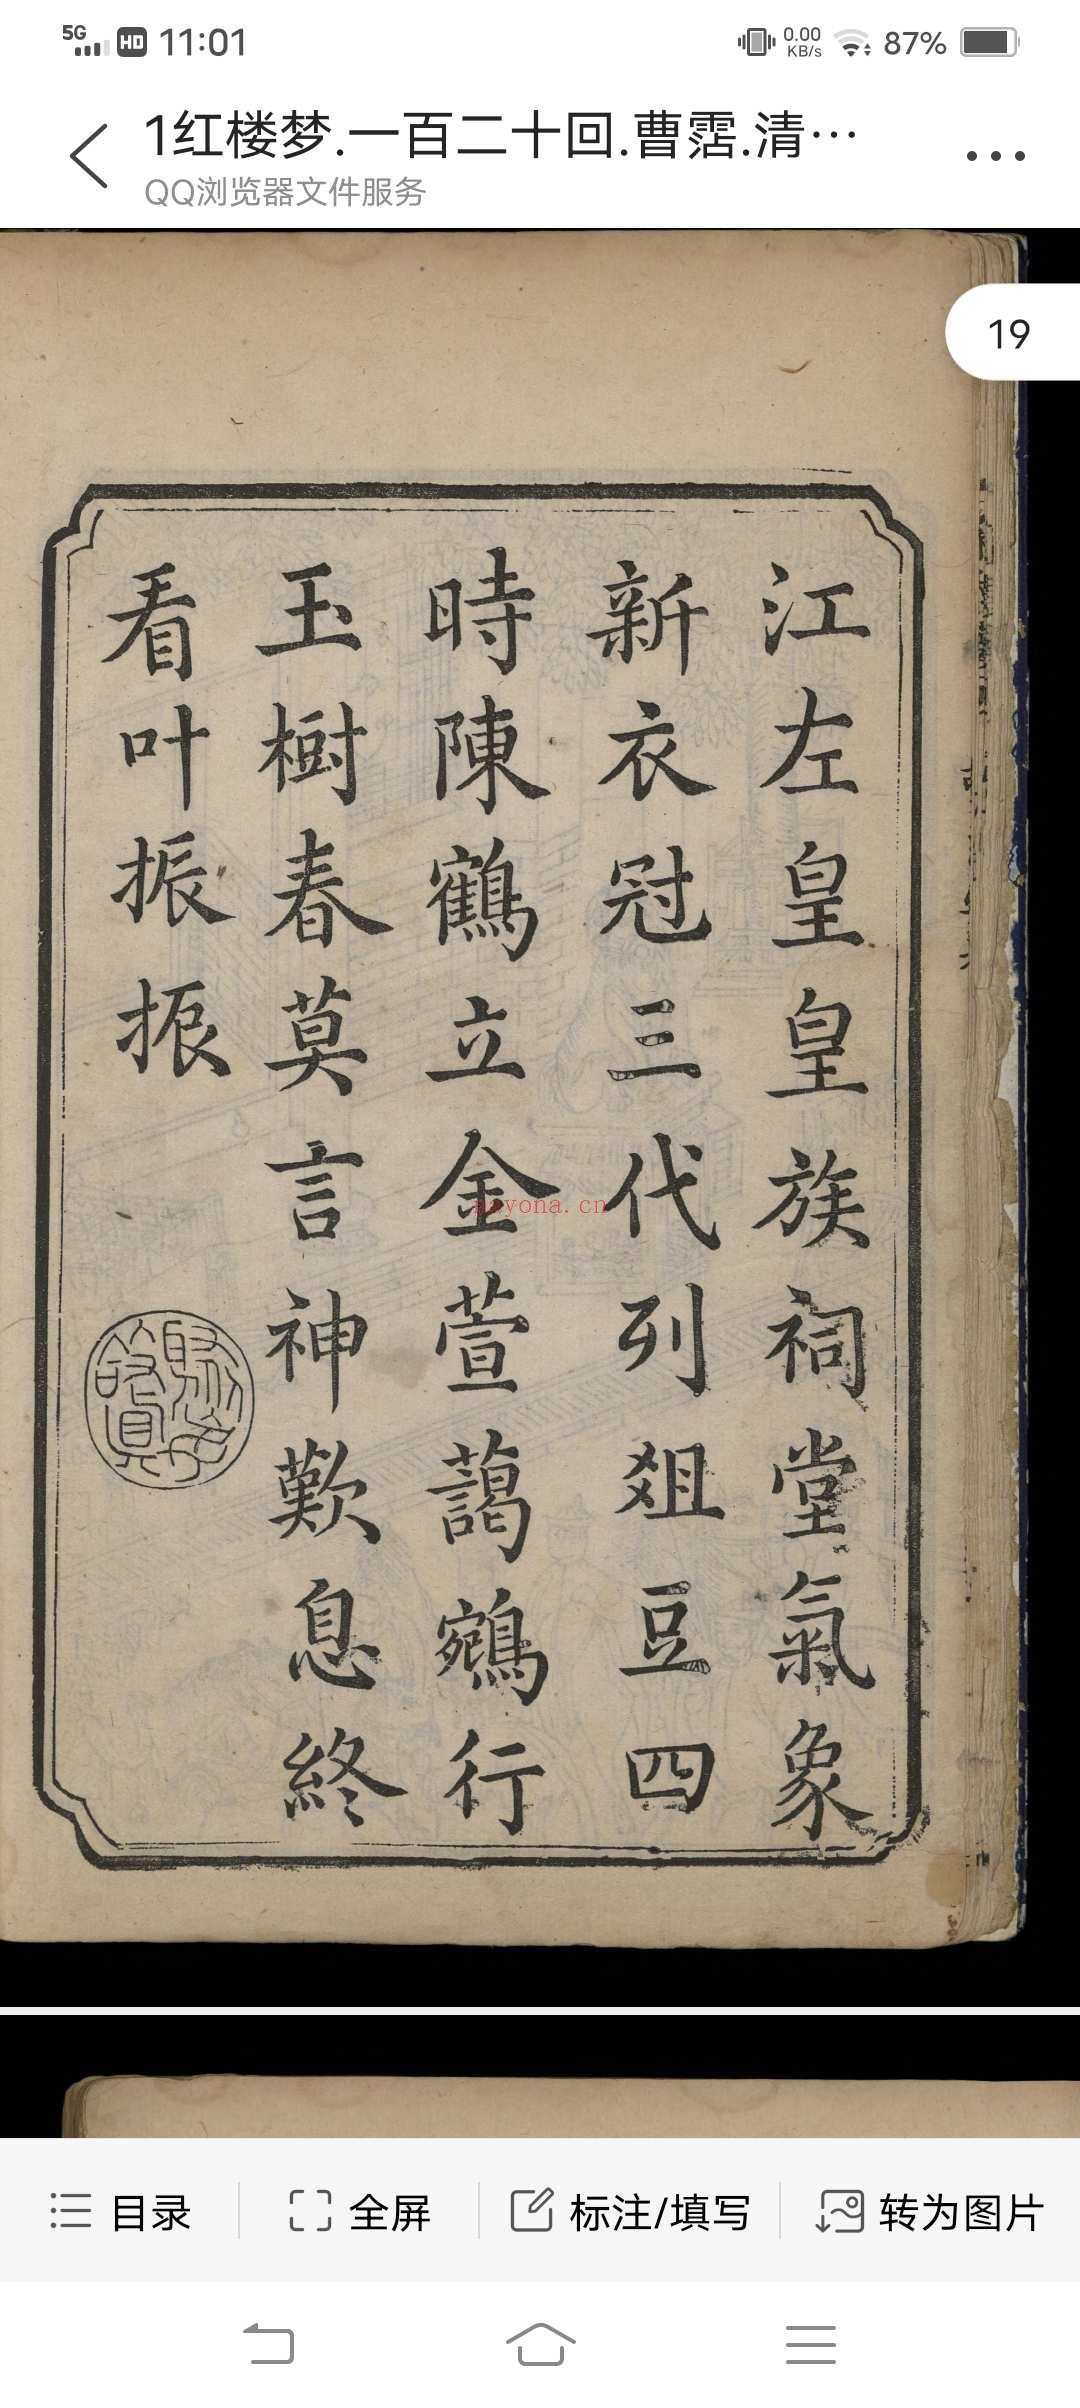 5G HD 11:01 0.00 KB/s 87%
1红楼梦.一百二十回.曹霑.清…
QQ浏览器文件服务
19
江左皇皇族祠堂氣象
新衣冠三代列爼豆四
時陳鶴立金萱藹鵷行
玉樹春莫言神歎息終
看叶振振
nayona.cn
目录 全屏 标注/填写 转为图片